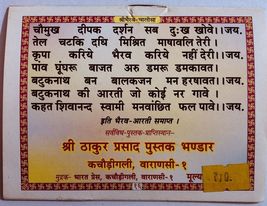 श्रीभैरव-चालीसा
चौमुख दीपक दर्शन सब दुःख खोवे।।जय.
तेल चटकि दधि मिश्रित माषावलि तेरी।
कृपा करिये भैरव करिये नहीं देरी।।जय.
पांव घूंघरू बाजत अरू डमरू डमकावत।
बटुकनाथ बन बालकजन मन हरषावत।।जय.
बटुकनाथ की आरती जो कोई नर गावे।
कहत शिवानन्द स्वामी मनवांछित फल पावे।।जय.
इति भैरव-आरती समाप्त।
सर्वविध-पुस्तक-प्राप्तिस्थान-
श्री ठाकुर प्रसाद पुस्तक भण्डार
कचौड़ीगली, वाराणसी-१
मुद्रक- भारत प्रेस, कचौड़ीगली, वाराणसी-१ मूल्य